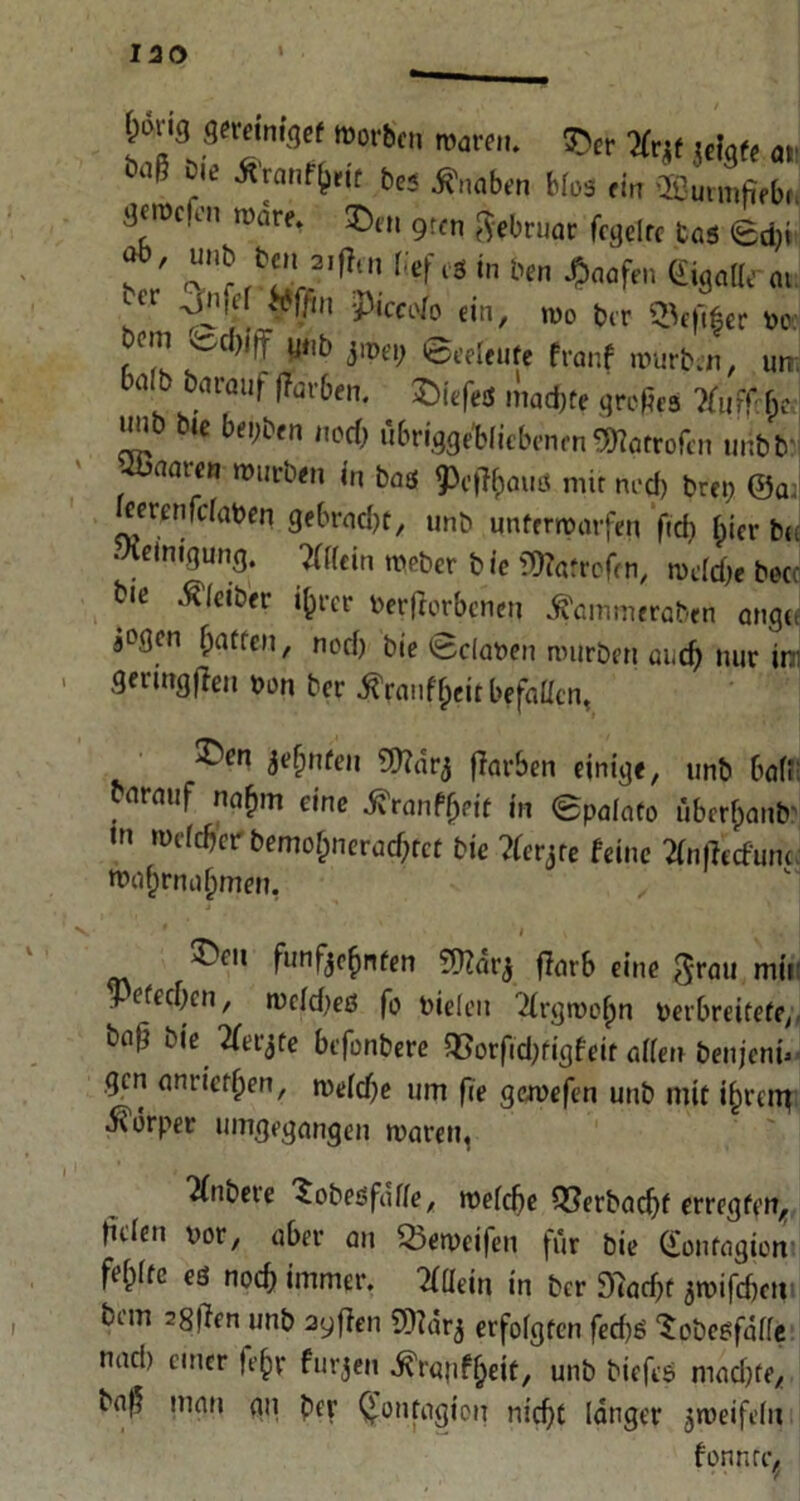 120
hörig gereiniget worden waren. Der Arzt zeigte an
daß die Krankheit des Knaben blos ein Wurmfiebe
gewesen wäre. Den 9ten Februar segelte das Schi
ab, und den 21sten lief es in den Haafen Cigalle
der Insel Piccolo ein, wo der Besitzer
dem Schiff und zwey Seeleute krank wurden,
bald darauf starben. Dieses machte großes
und die beyden noch übriggebliebenen Matrosen und
Waaren wurden in das Pesthaus mit noch drey
leerensclaven gebracht, und unterwarfen sich hier
Reinigung. Allein weder die Matrosen, welche
die Kleider ihrer verstorbenen Kammeraden ange
zogen hatten, noch die Sclaven wurden auch nur im
geringsten von der Krankheit befallen.
Den zehnten März starben einige, und bald
darauf nahm eine Krankheit in Spalato überhand
in welcher demohnerachtet die Aerzte keine Ansteckung
wahrnahmen.
Den funfzehnten März starb eine Frau mit
Petechen, welches so vielen Argwohn verbreitete,
daß die Aerzte besondere Vorsichtigkeit allen denjeni-
gen anriethen, welche um sie gewesen und mit ihrem
Körper umgegangen waren,
Andere Todesfälle, welche Verdacht erregten,
fielen vor, aber an Beweisen für die Contagion
fehlte es noch immer. Allein in der Nacht zwischen
dem 28sten und 29sten März erfolgten sechs Todesfälle
nach einer sehr kurzen Krankheit, und dieses machte,
daß man an der Contagion nicht länger zweifeln
konnte,